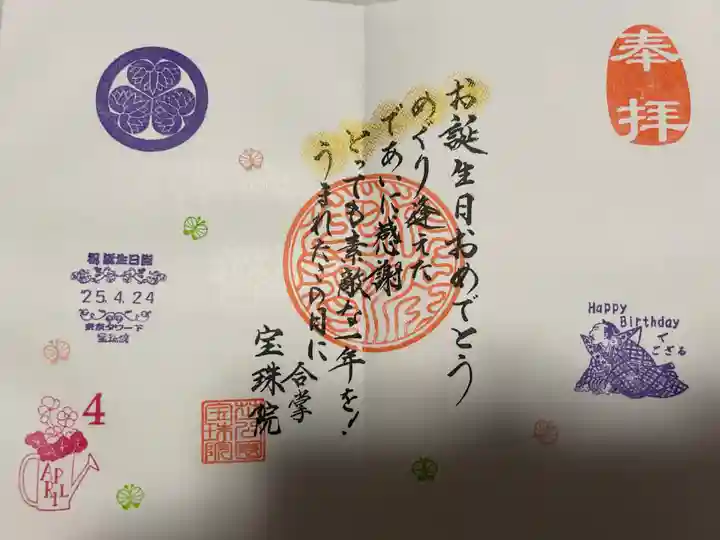 奉拝
お誕生日おめでとう
めぐり逢えた
であいに感謝
とっても素敵な一年を!
うまれたこの日に
合掌
宝珠院
Happy
Birthday
で
ござる
祝誕生日
25.4.24
東京タワー下
宝珠院
4
APRIL